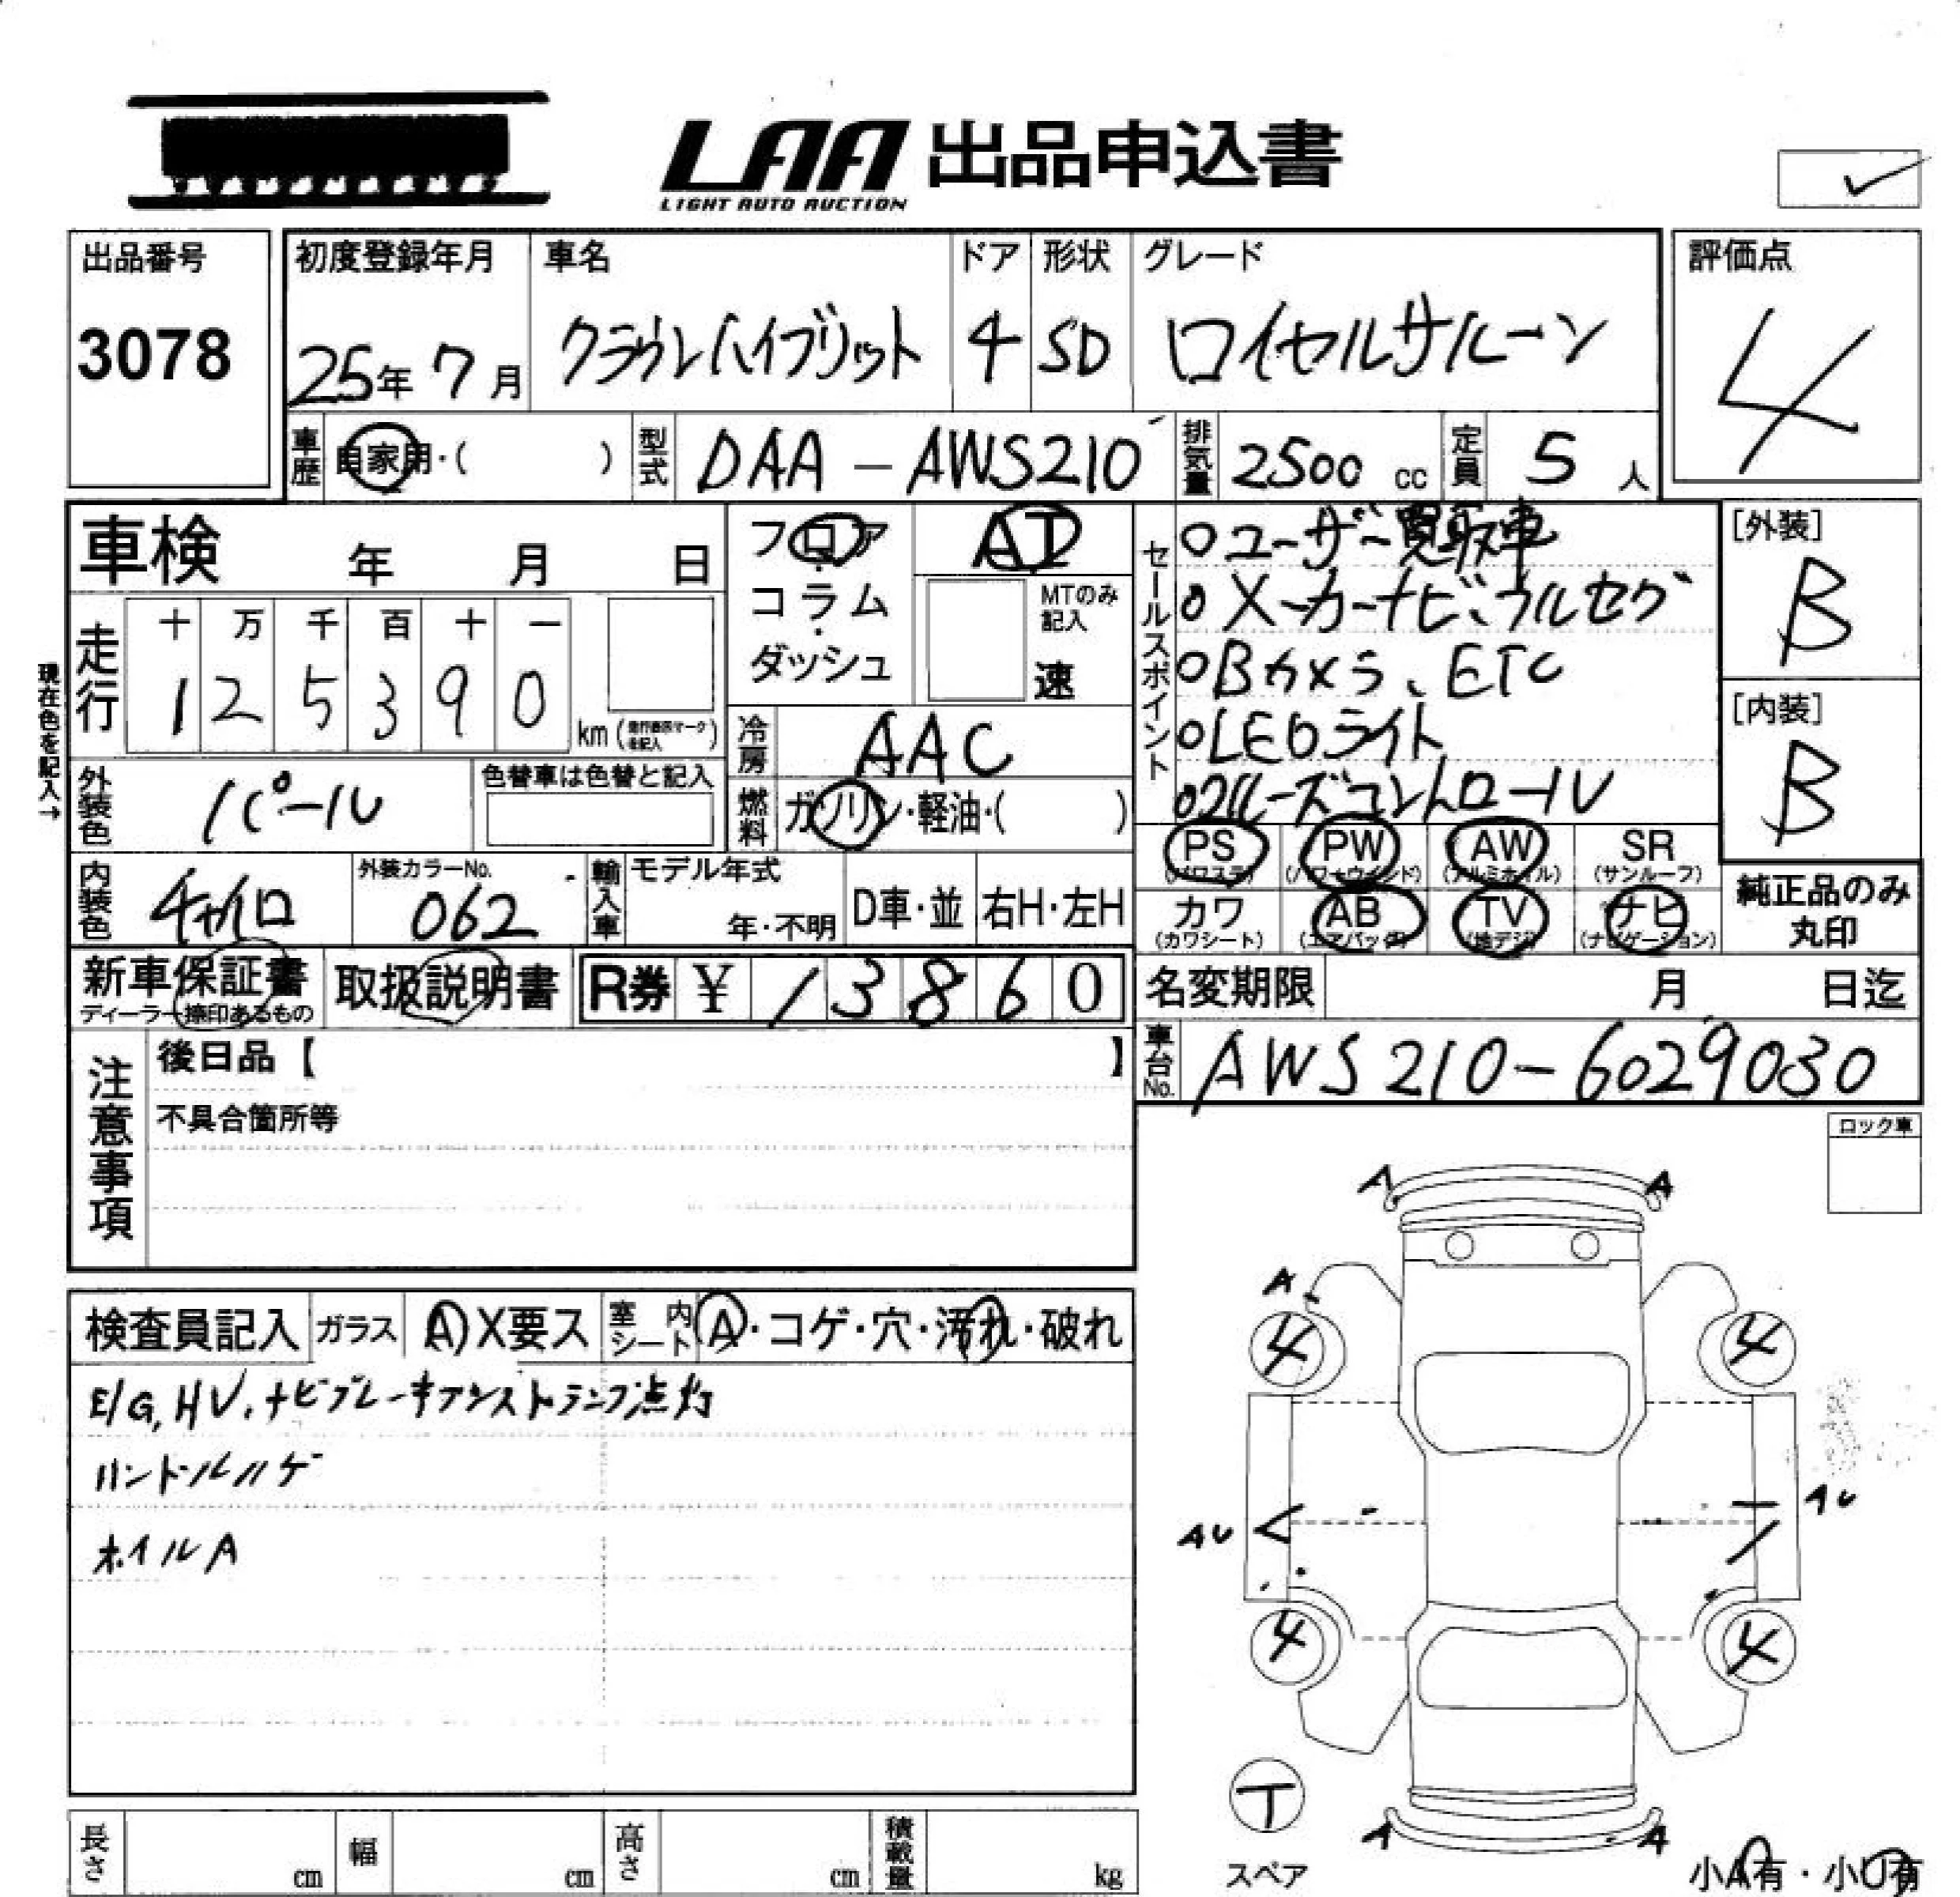 LAA 出品申込書
LIGHT AUTO AUCTION
出品番号
3078
初度登録年月
25年 7月
車名
クラウンハイブリット
ドア
4
形状
SD
グレード
ロイヤルサルーン
評価点
4
車歴
自家用・( )
型式
DAA-AWS210
排気量
2500 cc
定員
5 人
車検 年 月 日
フロア
・
コラム
・
ダッシュ
AT
MTのみ
記入
速
セールスポイント
○ユーザー買取車
○メーカーナビ、フルセグ
○Bカメラ、ETC
○LEDライト
○クルーズコントロール
[外装]
B
[内装]
B
現在色を記入→
走行
十 万 千 百 十 一
1 2 5 3 9 0 km
冷房
AAC
外装色
パール
色替車は色替と記入
燃料
ガソリン・軽油・( )
PS
(パワステ)
PW
(パワーウインド)
AW
(アルミホイル)
SR
(サンルーフ)
カワ
(カワシート)
AB
(エアバッグ)
TV
(地デジ)
ナビ
(ナビゲーション)
純正品のみ
丸印
内装色
チャイロ
外装カラーNo.
062
輸入車
モデル年式
年・不明
D車・並
右H・左H
新車保証書
ディーラー捺印あるもの
取扱説明書
R券 ¥ 1 3 8 6 0
名変期限 月 日迄
車台No.
AWS210-6029030
注意事項
後日品【 】
不具合箇所等
ロック車
検査員記入
ガラス
A X要ス
室内シート
A・コゲ・穴・汚れ・破れ
E/G, HV, ナビブレーキアシストランプ点灯
ハンドルハゲ
ホイルA
A A
A
4 4
AU AU
4 4
T
スペア
A A
小A有・小U有
長さ cm
幅 cm
高さ cm
積載量 kg